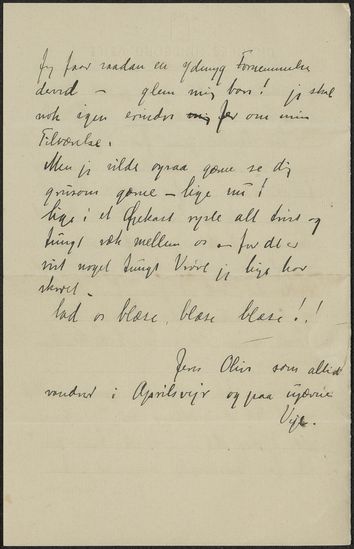 Jeg faar saadan en ydmyg Fornemmelse
derved – glem mig bare! jeg skal
nok igen erindre mig før om min
Tilværelse.
Men jeg vilde ogsaa gærne se dig
grusom gærne – lige nu!
lige i et Øjekast ryste alt trist og
tungt væk mellem os – for det er
vist noget tungt Vrøvl jeg lige har
skrevet –
lad os blæse, blæse blæse!!
Jens Olivs som altid
vandrer i Aprilsvejr og paa ujævne
Veje.